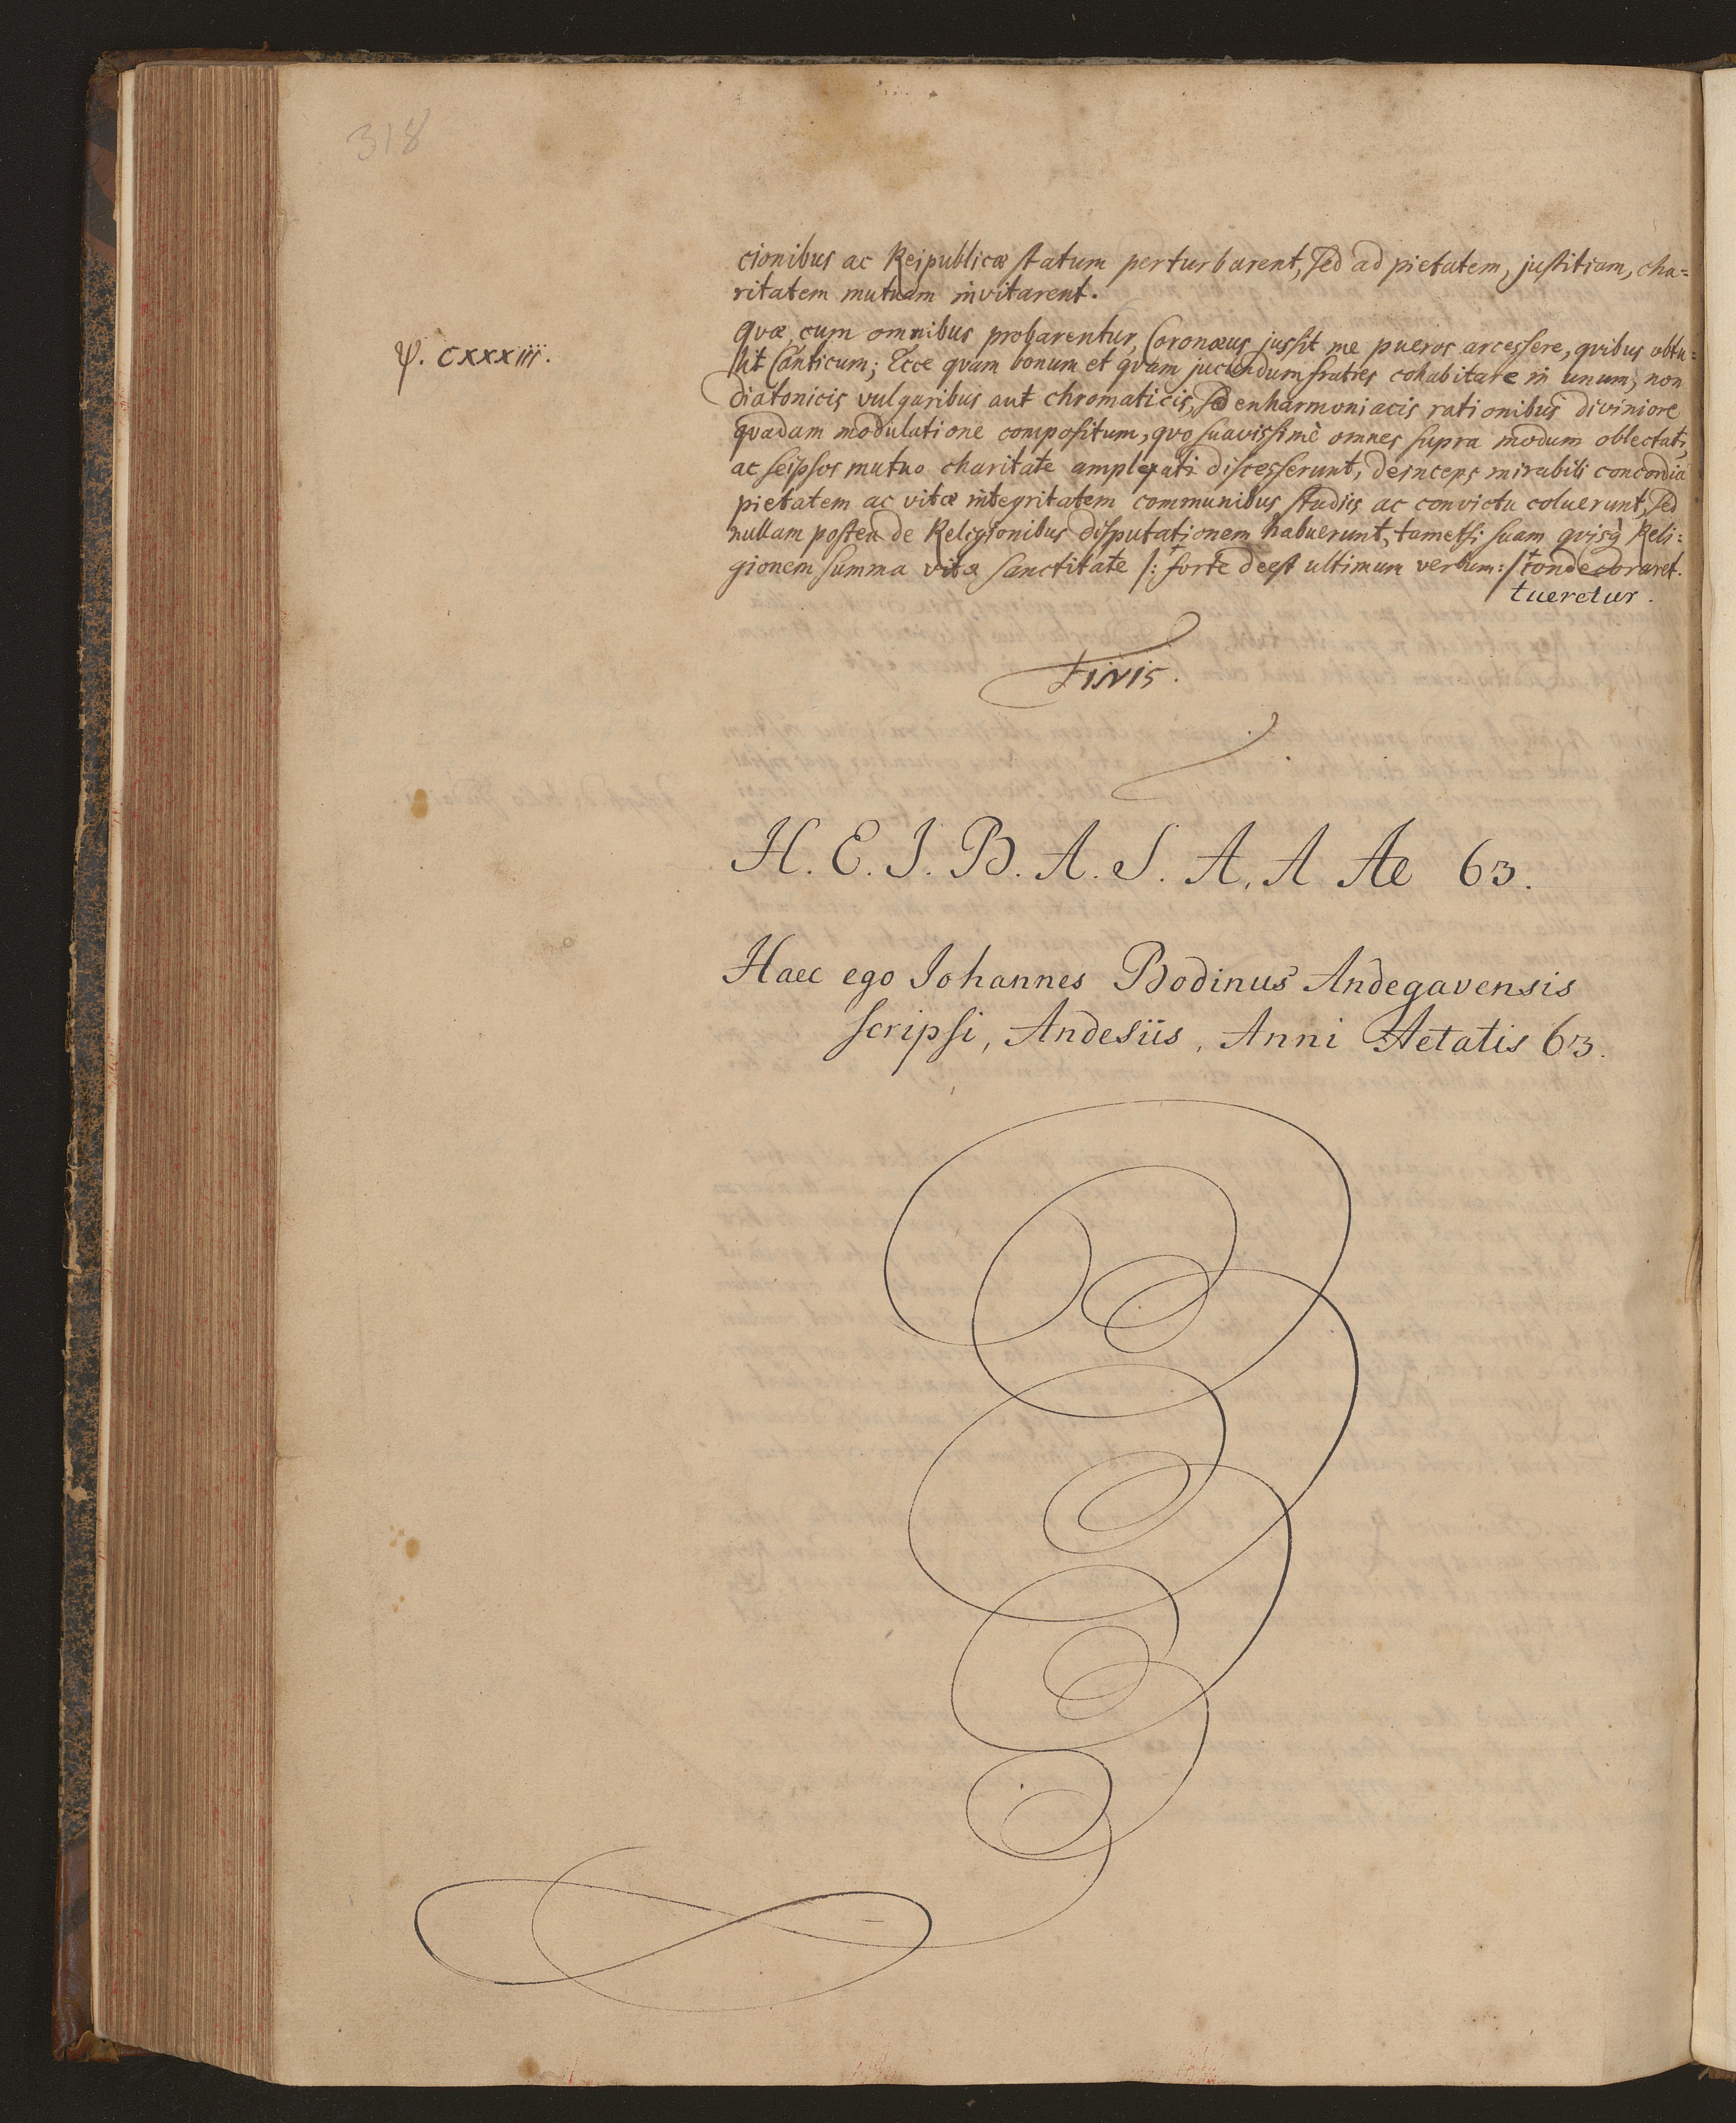 318
cionibus ac Reipublicæ statum perturbarent, sed ad pietatem, justitiam, cha=
ritatem mutuam invitarent.
quæ cum omnibus probarentur, Coronæus jussit me pueros arcessere, quibus obtu=
ψ. CXXXIIII.
lit Canticum; Ecce quam bonum et quam jucundum fratres cohabitare in unum, non
diatonicis vulgaribus aut chromaticis, sed enharmoniacis rationibus diviniore
quadam modulatione compositum, quo suavissimè omnes supra modum oblectati,
ac seipsos mutuo charitate amplexati discesserunt, deinceps mirabili concordia
pietatem ac vitæ integritatem communibus studiis ac convictu coluerunt, sed
nullam postea de Religionibus disputationem habuerunt, tametsi suam quisq̀ Reli=
gionem summa vitæ sanctitate /: forte deest ultimum verbum :/
tueretur.
Finis.
H. E. J. B. A. S. A. A Ae 63.
Haec ego Johannes Bodinus Andegavensis
scripsi, Andesiis, Anni Aetatis 63.